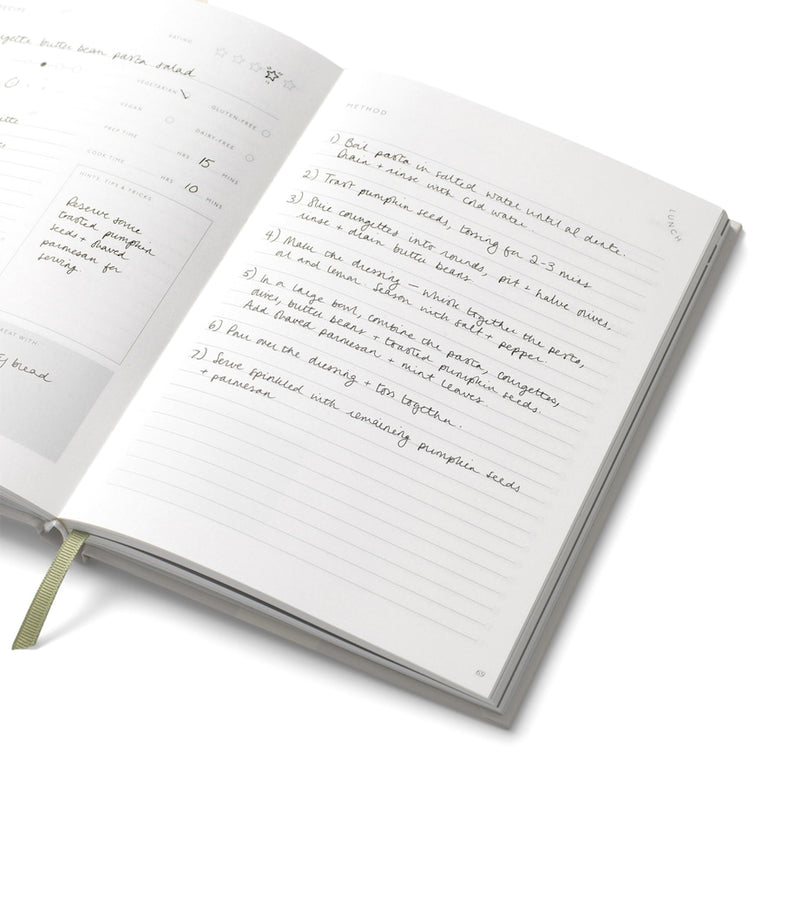 RECIPE
butter bean pasta salad
RATING
VEGETARIAN
VEGAN
GLUTEN-FREE
DAIRY-FREE
PREP TIME HRS 15 MINS
COOK TIME HRS 10 MINS
HINTS, TIPS & TRICKS
Reserve some
toasted pumpkin
seeds + shaved
parmesan for
serving.
EAT WITH
bread
METHOD
LUNCH
1) Boil pasta in salted water until al dente.
Drain + rinse with cold water.
2) Toast pumpkin seeds, tossing for 2-3 mins
3) Slice courgettes into rounds, pit + halve olives,
rinse + drain butter beans
4) Make the dressing – whisk together the pesto,
oil and lemon. Season with salt + pepper.
5) In a large bowl, combine the pasta, courgettes,
olives, butter beans + toasted pumpkin seeds.
Add shaved parmesan + mint leaves.
6) Pour over the dressing + toss together.
7) Serve sprinkled with remaining pumpkin seeds
+ parmesan
69